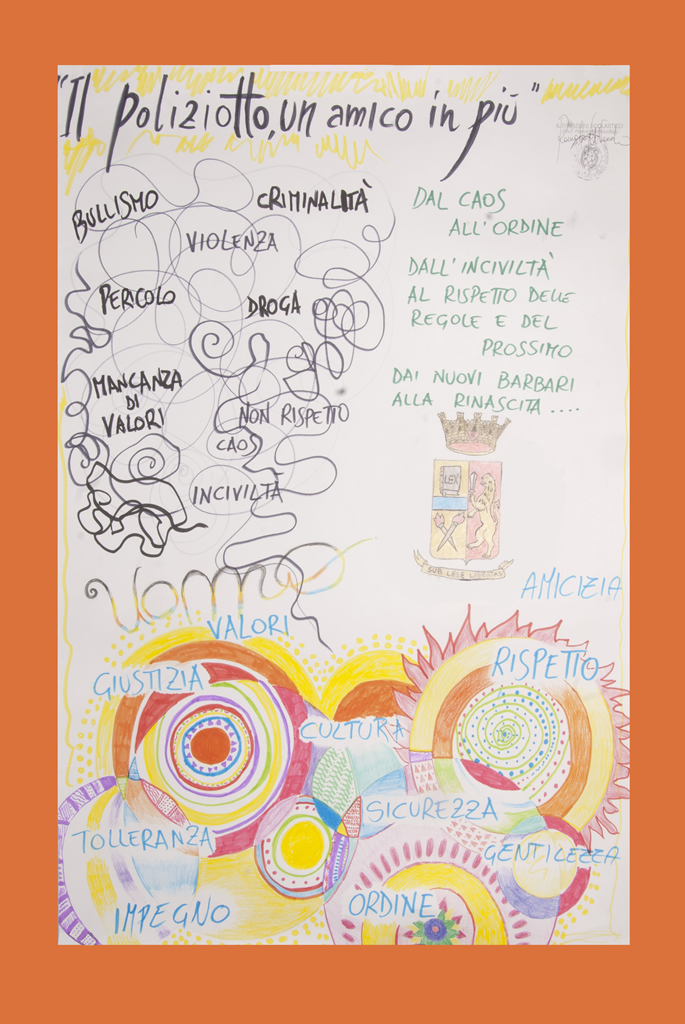 "Il poliziotto, un amico in più"
BULLISMO
CRIMINALITÀ
VIOLENZA
PERICOLO
DROGA
MANCANZA
DI
VALORI
NON RISPETTO
CAOS
INCIVILTÀ
DAL CAOS
ALL'ORDINE
DALL'INCIVILTÀ
AL RISPETTO DELLE
REGOLE E DEL
PROSSIMO
DAI NUOVI BARBARI
ALLA RINASCITA....
LEX
SUB LEGE LIBERTAS
UOMO
AMICIZIA
VALORI
GIUSTIZIA
RISPETTO
CULTURA
SICUREZZA
TOLLERANZA
GENTILEZZA
IMPEGNO
ORDINE